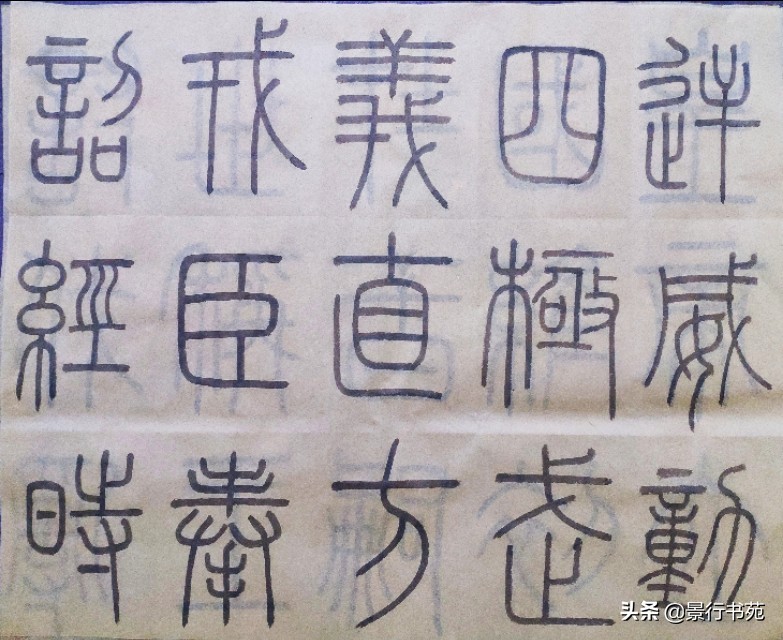 逆威動
四極武
義直方
戎臣奉
詔經時
头条 @景行书苑